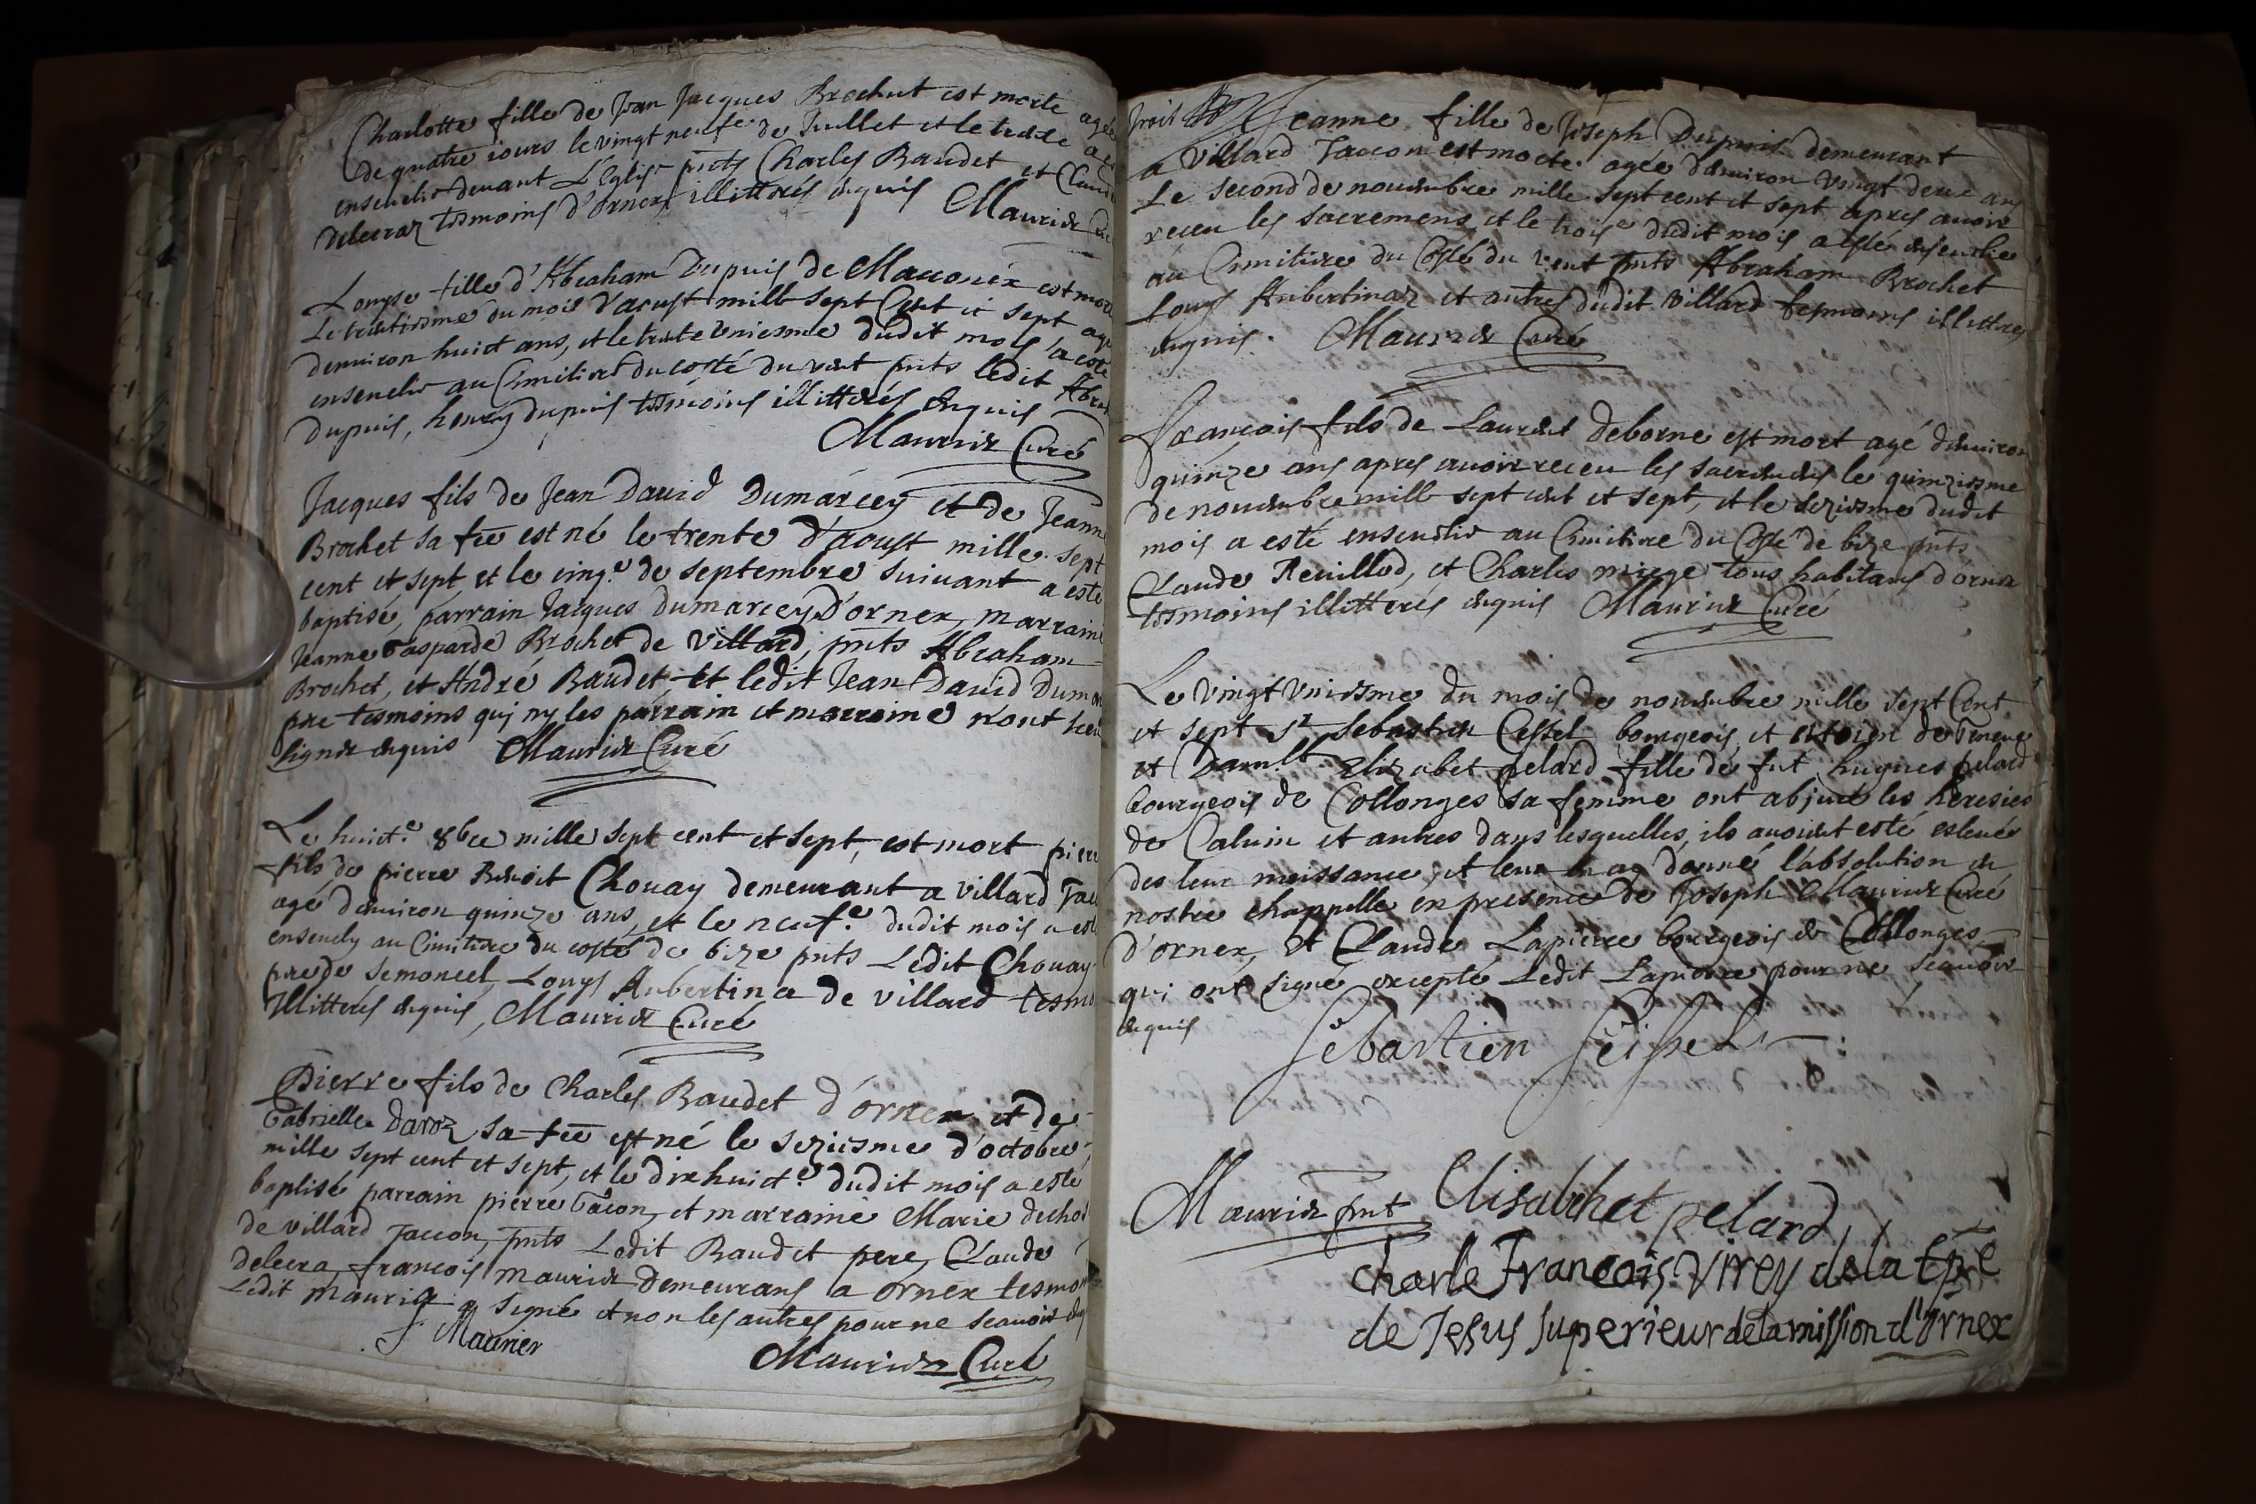 Charlotte fille de Jean Jacques Brochut est morte agée
de quatre iours le vingt neufe de Juillet et le trente a esté
enseuelie deuant L'Eglise pnts Charles Baudet et Claude
Delecraz tesmoins d'Ornex illitterés enquis Maurier Curé
Louyse fille d'Abraham Dupuis de Maconéx est morte
Le trentiesme du mois d'aoust mill sept Cent et sept agée
denuiron huict ans, et le trente vniesme dudit mois a esté
enseuelie au Cimitiere du costé du vent pnts ledit Abra
Dupuis, henry dupuis tesmoins illitterés enquis
Maurier Curé
Jacques fils de Jean David Dumarcey et de Jeanne
Brochet sa fē est né le trente d'aoust mille sept
cent et sept et le cinq.e de septembre suiuant a esté
baptisé, parrain Jacques Dumarcey d'ornex, marraine
Jeanne Gasparde Brochet de Villard, pnts Abraham
Brochet, et André Baudet et ledit Jean David Duma
pere tesmoins qui ny les parrain et marraine n'ont sceu
signer enquis Maurier Curé
Le huict.e 8bre mille sept cent et sept, est mort pierre
fils de pierre Benoit Chouay demeurant a villard Tac
agé denuiron quinze ans, et le neuf.e dudit mois a esté
enseuely au Cimitiere du costé de bize pnts Ledit Chouay
pere de Semoncel, Louys Aubertina de villard tesmo
Illitterés enquis, Maurier Curé
Pierre fils de Charles Baudet d'ornex et de
Gabrielle Daroz sa fē est né le seziesme d'octobre
mille sept cent et sept, et le dix huict.e dudit mois a esté
baptisé parrain pierre Gacon, et marraine Marie duho
de villard Taccon, pnts Ledit Baudet pere, Claude
delecra, francois maurier demeurans a ornex tesmo
Ledit maurier a signé et non les autres pour ne scauoir enq
f Maurier
Maurier Curé
Jeanne fille de Joseph Dupuis demeurant
a Villard Taccon est morte agée denuiron vingt deux ans
Le second de nouembre mille sept cent et sept apres auoir
receu les sacremens, et le trois.e dudit mois a esté enseuelie
au Cimitiere du Costé du vent pnts Abraham Brochet
Louys Aubertinaz et autres dudit Villard tesmoins illitterés
enquis. Maurier Curé
François fils de Laurent deborne est mort agé denuiron
quinze ans apres auoir receu les sacremens le quinziesme
de nouembre mill sept cent et sept, et le seziesme dudit
mois a esté enseuelie au Cimitiere du Costé de bize pnts
Claude Reuillod, et Charles miege tous habitans d'ornex
tesmoins illitterés enquis Maurier Curé
Le vingt vniesme du mois de nouembre mille sept Cent
et sept Sr Sebastien Cessel bourgeois et citoien de Geneue
et Damlle Elizabet pelard fille de fut hugues pelard
bourgeois de Collonges sa femme ont abjuré les heresies
de Caluin et autres dans lesquelles ils auoient esté esleués
des leur naissance, et leur en ay donné l'absolution en
nostre chappelle en presence de Joseph Maurier Curé
d'ornex, et Claude Lapierre bourgeois de Collonges
qui ont signé excepté Ledit Lapierre pour ne scauoir
enquis
Sebastien Seissel
Maurier pnt Elisabhet pelard
Charle François Virey de la Cpie
de Jesus superieur de la mission d'ornex